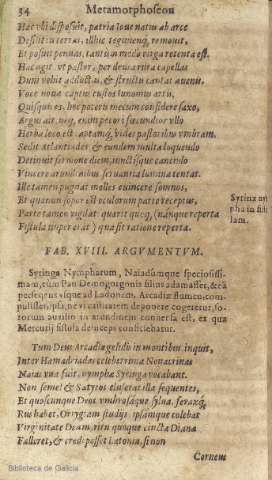 34 Metamorphoseon
Haec ubi disposuit, patria Ioue natus ab arce
Desilit in terras, illhic tegimenq; remouit,
Et posuit pennas, tantummodo virga retenta est.
Hac agit vt pastor, per deuia rura capellas
Dum venit adductas, & structis cantat auenis.
Voce noua captus custos Iunonius artis,
Quisquis es, hoc poteras mecum considere saxo,
Argus ait, neq; enim pecori fœcundior vllo
Herba loco est, aptamq; vides pastoribus vmbram.
Sedit Atlantiades, & euntem multa loquendo
Detinuit sermone diem, iunctisque canendo
Vincere arundinibus seruantia lumina tentat.
Ille tamen pugnat molles euincere somnos,
Et quamuis sopor est oculorum parte receptus,
Parte tamen vigilat: quærit quoq; (nanque reperta
Fistula nuper erat) qua sit ratione reperta.
Syrinx nym
pha in fistu
lam.
FAB. XVIII. ARGVMENTVM.
Syringa Nympharum, Naiadumque speciosissi-
mam, cùm Pan Demogorgonis filius adamasset, & ea
persequeretur usque ad Ladonem, Arcadiæ flumen, com-
pulisset, ipsa, ne virginitatem deponere cogeretur,
sororum auxilio in arundinem conuersa est, ex qua
Mercurij fistula deinceps conficiebatur.
Tum Deus Arcadiæ gelidis in montibus, inquit,
Inter Hamadryadas celeberrima Nonacrinas
Naias vna fuit, nymphæ Syringa vocabant.
Non semel & Satyros eluserat illa sequentes,
Et quoscunque Deos vmbrosaque sylua, feraxq;
Rus habet. Ortygiam studijs, ipsamque colebat
Virginitate Deam, ritu quoque cincta Dianæ
Falleret, & credi posset Latonia, si non
Corneus
Biblioteca de Galicia